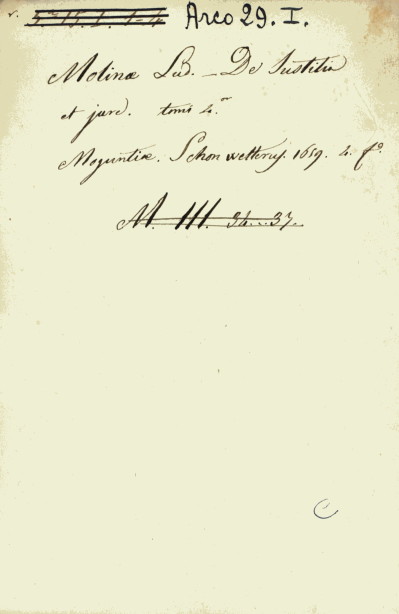 Arco 29. I.
Molinæ Lud. - De Justitia
et jure. tomi 4.or
Moguntiæ. Schonwetterus. 1659. 4. fo.
M. III. 34...37.